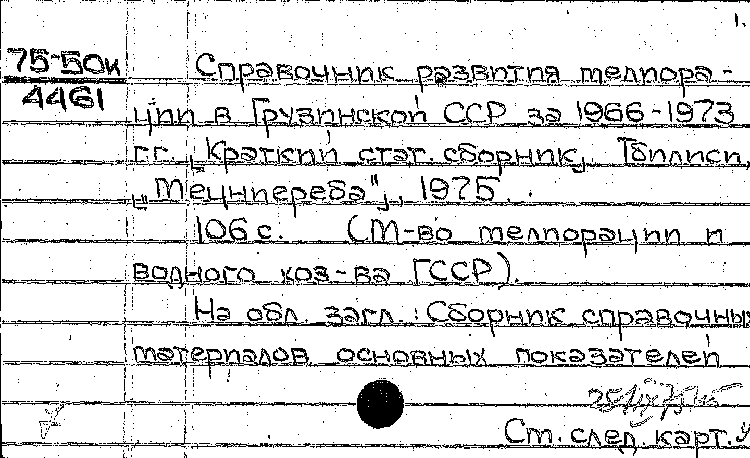 1.
75-50к Справочник развития мелиора-
4461 ции в Грузинской ССР за 1966-1973
г.г. „Краткий стат. сборник„. Тбилиси,
„Мецниереба"„, 1975.
106 с. (М-во мелиорации и
водного хоз-ва ГССР).
На обл. загл.: Сборник справочных
материалов основных показателей
См. след. карт.